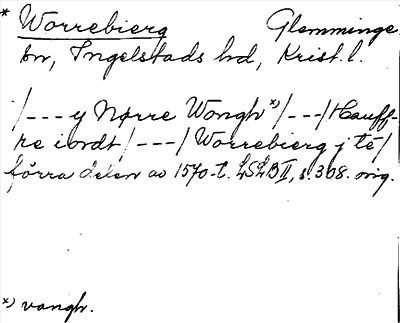 * Worrebierg Glemminge
sn, Ingelstads hd, Krist. l.
/---y Nørre Wongh *)/---/Hauff-
re iordt/---/Worrebierg j të/
förra delen av 1570-t. LSLB II, s. 308. orig.
*) vangh.